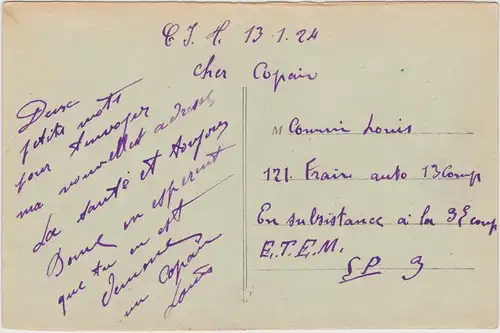 C. I. H. 13.1.24
cher Copain
Deux
petits mots
pour
ma nouvelles adresse
La santé et toujours
Bonne en esperent
que tu en est
de mon
un Copain
Louis
M Louis
121 Train auto 13 Comp
En subsistance a la 3E comp
E.T.E.M.
SP 3